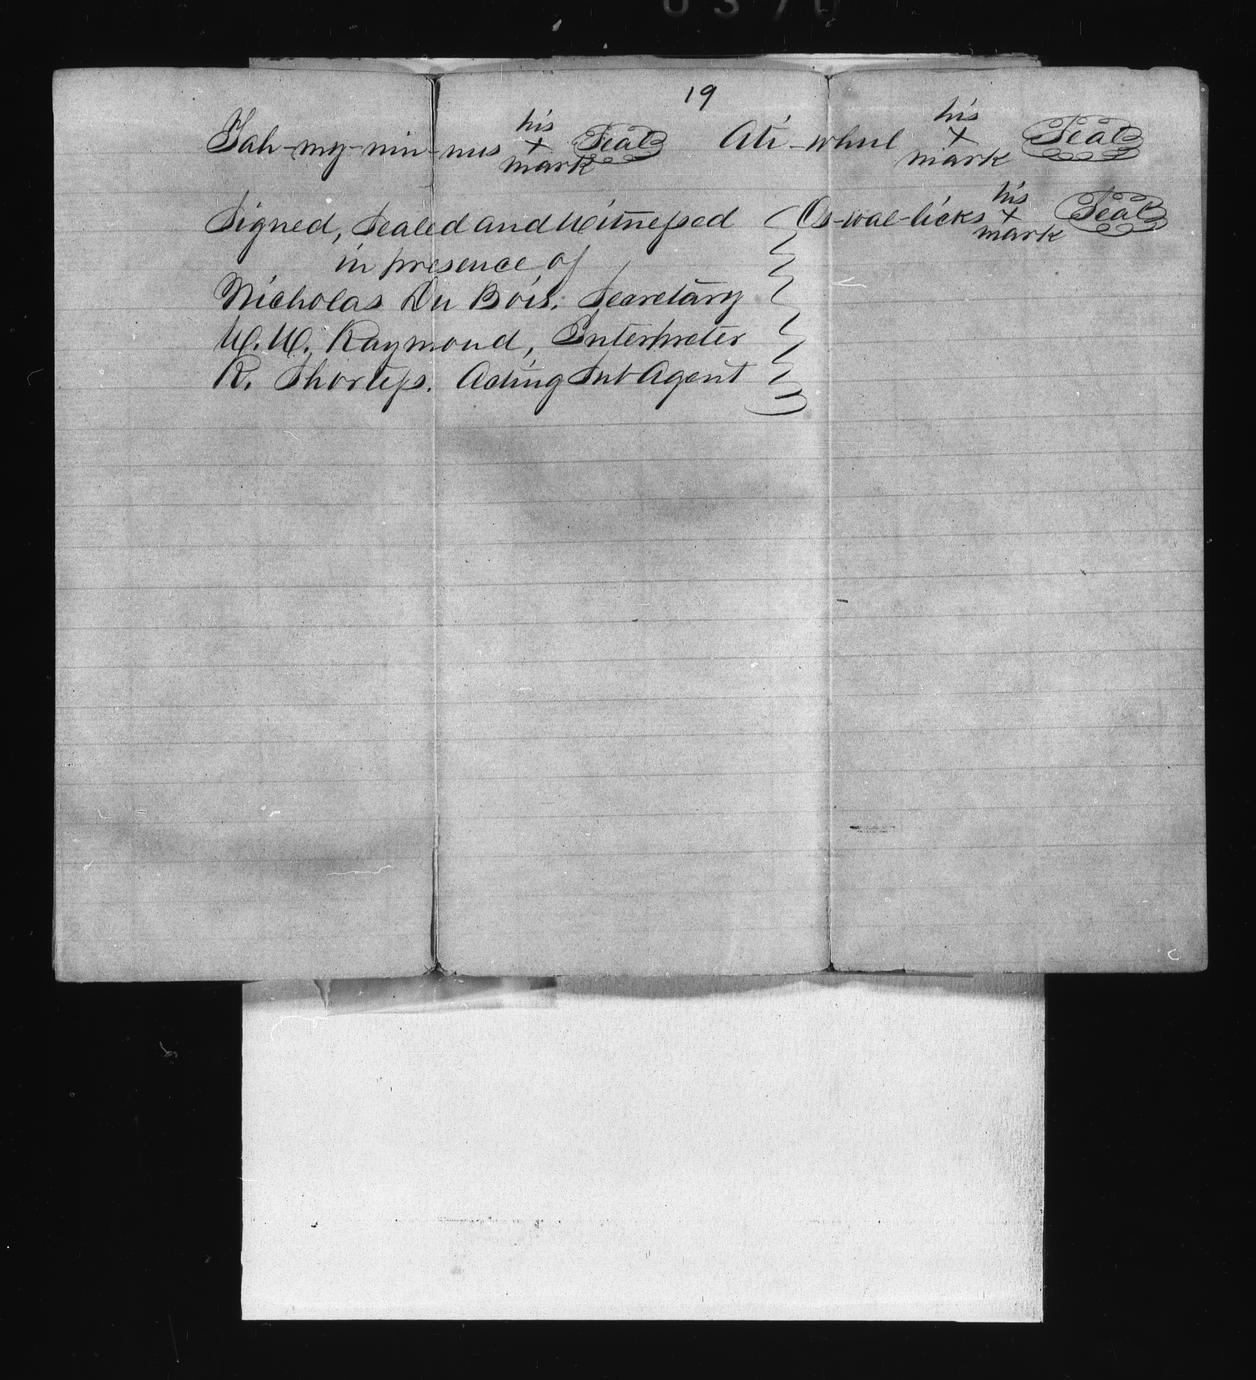 19
Tah-my-nin-nus his x mark Seal Ati-whul his x mark Seal
Signed, Sealed and Witnessed Os-wal-licks his x mark Seal
in presence of
Nicholas Du Bois. Secretary
W. W. Raymond, Interpreter
R. Shortess. Acting Sub Agent